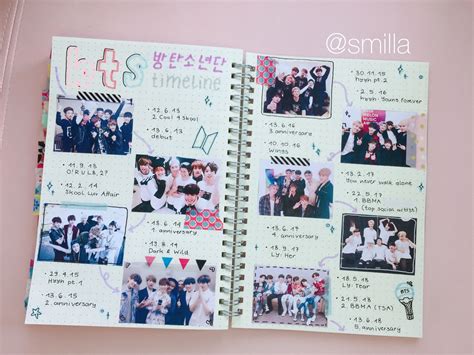 @smilla
bts 방탄소년단
timeline
• 12.6.13
2 Cool 4 Skool
• 13.6.13
debut
• 11.9.13
O!RUL8,2?
• 12.2.14
Skool Luv Affair
• 13.6.14
1. anniversary
• 19.8.14
Dark & Wild
• 29.4.15
Hyyh pt. 1
• 13.6.15
2. anniversary
• 30.11.15
Hyyh pt. 2
• 2.5.16
Hyyh: Young forever
• 13.6.16
3. anniversary
• 10.10.16
Wings
MELON MUSIC
• 13.2.17
You never walk alone
• 21.5.17
1. BBMA
(top social artist)
• 13.6.17
4. anniversary
• 18.9.17
Ly: Her
• 18.5.18
Ly: Tear
• 21.5.18
2. BBMA (TSA)
• 13.6.18
5. anniversary
BTS